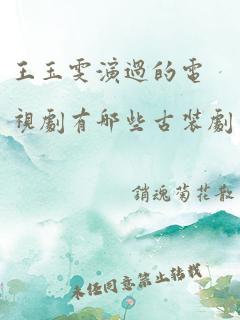 王玉雯演過的電
視劇有哪些古裝劇
銷魂菊花散
未經同意禁止轉載